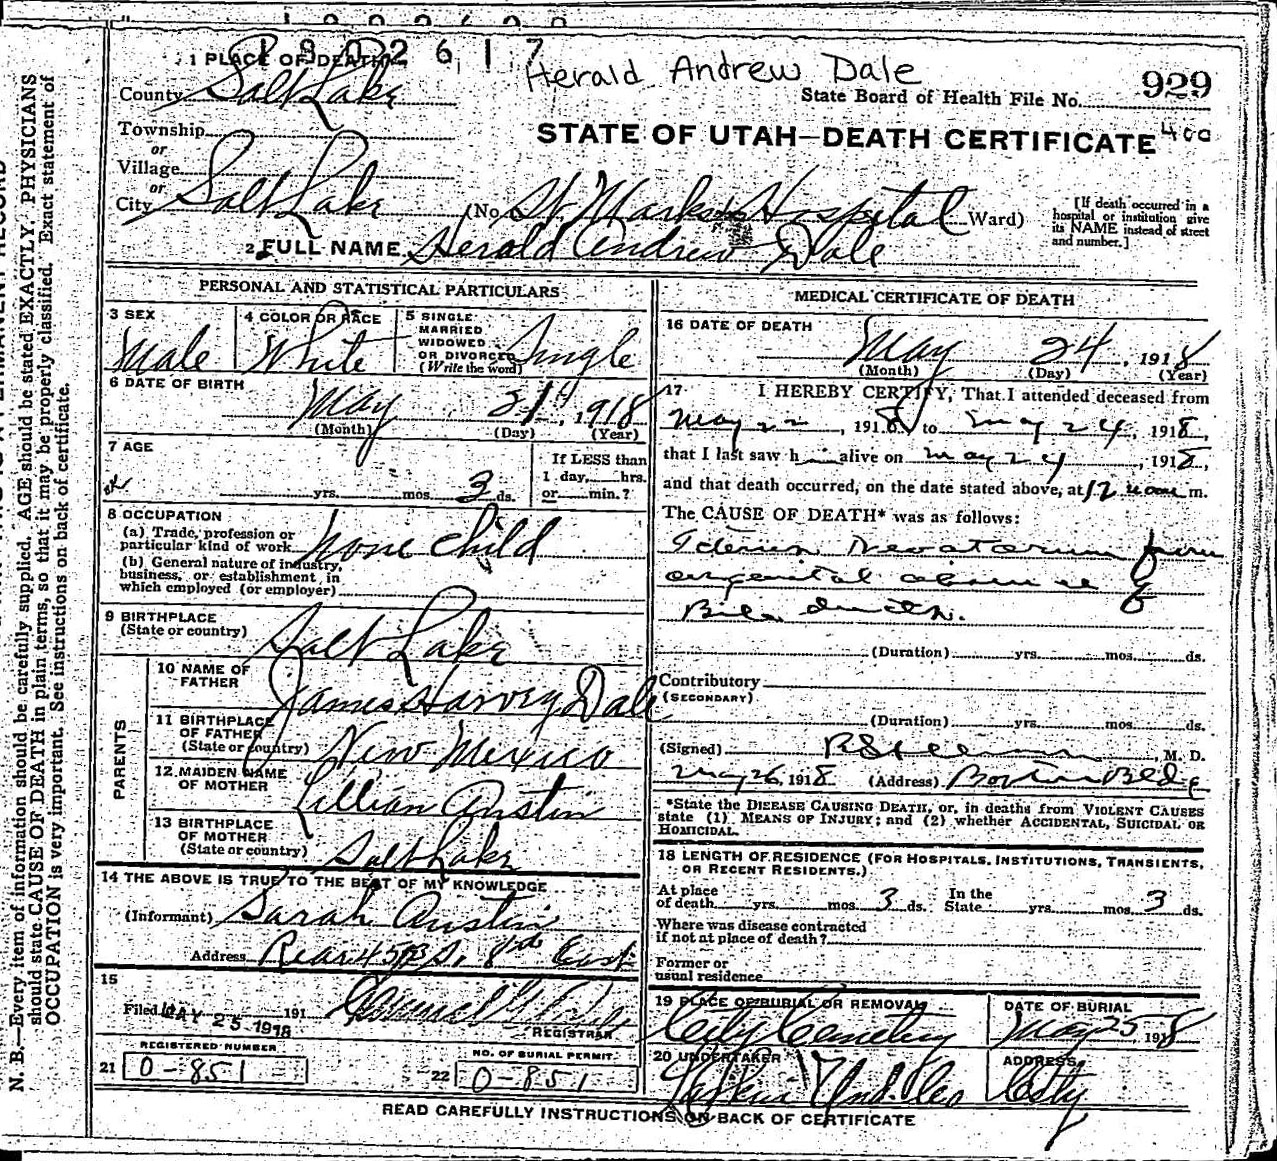 1902617
Herald Andrew Dale
929
1 PLACE OF DEATH
County Salt Lake
State Board of Health File No.
Township
or
STATE OF UTAH—DEATH CERTIFICATE 400
Village
or
City Salt Lake (No. St. Marks Hospital Ward)
[If death occurred in a hospital or institution give its NAME instead of street and number.]
2 FULL NAME Herald Andrew Dale
PERSONAL AND STATISTICAL PARTICULARS
3 SEX
Male
4 COLOR OR RACE
White
5 SINGLE
MARRIED
WIDOWED
OR DIVORCED
(Write the word)
Single
6 DATE OF BIRTH
May 21st, 1918
(Month) (Day) (Year)
7 AGE
yrs. mos. 3 ds.
If LESS than
1 day, hrs.
or min.?
8 OCCUPATION
(a) Trade, profession or
particular kind of work
none child
(b) General nature of industry,
business, or establishment in
which employed (or employer)
9 BIRTHPLACE
(State or country)
Salt Lake
PARENTS
10 NAME OF
FATHER
James Harvey Dale
11 BIRTHPLACE
OF FATHER
(State or country)
New Mexico
12 MAIDEN NAME
OF MOTHER
Lillian Austin
13 BIRTHPLACE
OF MOTHER
(State or country)
Salt Lake
14 THE ABOVE IS TRUE TO THE BEST OF MY KNOWLEDGE
(Informant) Sarah Austin
Address Rear 453 So. 8th East
15
Filed MAY 25 1918 191
REGISTRAR
REGISTERED NUMBER
21 0-851
NO. OF BURIAL PERMIT
22 0-851
MEDICAL CERTIFICATE OF DEATH
16 DATE OF DEATH
May 24, 1918
(Month) (Day) (Year)
17 I HEREBY CERTIFY, That I attended deceased from
May 22, 1918, to May 24, 1918,
that I last saw h alive on May 24, 1918,
and that death occurred, on the date stated above, at 12 noon m.
The CAUSE OF DEATH* was as follows:
Icterus Neonatorum from
congenital absence of
Bile ducts.
(Duration) yrs. mos. ds.
Contributory
(SECONDARY)
(Duration) yrs. mos. ds.
(Signed) , M. D.
May 26, 1918 (Address) Boston Bldg
*State the DISEASE CAUSING DEATH, or, in deaths from VIOLENT CAUSES
state (1) MEANS OF INJURY; and (2) whether ACCIDENTAL, SUICIDAL OR
HOMICIDAL.
18 LENGTH OF RESIDENCE (FOR HOSPITALS, INSTITUTIONS, TRANSIENTS,
OR RECENT RESIDENTS.)
At place
of death yrs. mos. 3 ds.
In the
State yrs. mos. 3 ds.
Where was disease contracted
if not at place of death?
Former or
usual residence
19 PLACE OF BURIAL OR REMOVAL
City Cemetery
DATE OF BURIAL
May 25 1918
20 UNDERTAKER
ADDRESS
City
READ CAREFULLY INSTRUCTIONS ON BACK OF CERTIFICATE
N. B.—Every item of information should be carefully supplied. AGE should be stated EXACTLY. PHYSICIANS
should state CAUSE OF DEATH in plain terms, so that it may be properly classified. Exact statement of
OCCUPATION is very important. See instructions on back of certificate.